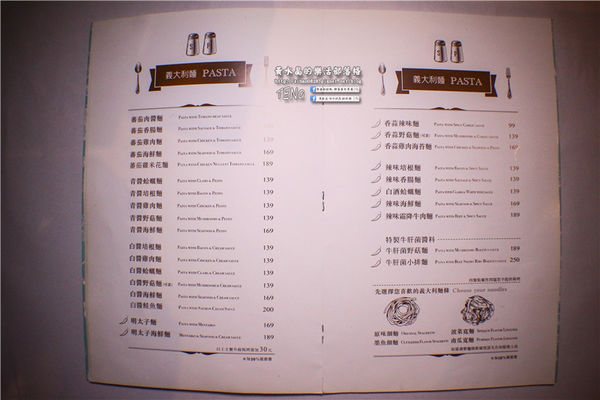 黃水晶的樂活部落格
TENG
義大利麵 PASTA
蕃茄肉醬麵 PASTA WITH TOMATO MEAT SAUCE
蕃茄香腸麵 PASTA WITH SAUSAGE & TOMATO SAUCE
蕃茄雞肉麵 PASTA WITH CHICKEN & TOMATO SAUCE 139
蕃茄海鮮麵 PASTA WITH SEAFOOD & TOMATO SAUCE 169
蕃茄雞米花麵 PASTA WITH CHICKEN NUGGETS TOMATO SAUCE 189
青醬蛤蠣麵 PASTA WITH CLAMS & PESTO 139
青醬培根麵 PASTA WITH BACON & PESTO 139
青醬雞肉麵 PASTA WITH CHICKEN & PESTO 139
青醬野菇麵 PASTA WITH MUSHROOMS & PESTO 139
青醬海鮮麵 PASTA WITH SEAFOOD & PESTO 169
白醬培根麵 PASTA WITH BACON & CREAM SAUCE 139
白醬雞肉麵 PASTA WITH CHICKEN & CREAM SAUCE 139
白醬蛤蠣麵 PASTA WITH CLAMS & CREAM SAUCE 139
白醬野菇麵 PASTA WITH MUSHROOMS & CREAM SAUCE 139
白醬海鮮麵 PASTA WITH SEAFOOD & CREAM SAUCE 169
白醬鮭魚麵 PASTA WITH SALMON CREAM SAUCE 200
明太子麵 PASTA WITH MENTAIKO 169
明太子海鮮麵 MENTAIKO & SEAFOOD & CREAM SAUCE 189
義大利麵 PASTA
香蒜辣味麵 PASTA WITH SPICY GARLIC SAUCE 99
香蒜野菇麵 PASTA WITH MUSHROOMS & GARLIC SAUCE 139
香蒜雞肉海苔麵 169
辣味培根麵 PASTA WITH BACON & SPICY SAUCE 139
辣味香腸麵 PASTA WITH SAUSAGE & SPICY SAUCE 139
白酒蛤蠣麵 PASTA WITH CLAMS & WHITE WINE SAUCE 139
辣味海鮮麵 PASTA WITH SEAFOOD & SPICY SAUCE 169
辣味霜降牛肉麵 PASTA WITH BEEF & SPICY SAUCE 189
特製牛肝菌醬料
牛肝菌野菇麵 189
牛肝菌小排麵 250
先選擇您喜歡的義大利麵條 Choose your noodles
原味細麵 ORIGINAL SPAGHETTI 菠菜寬麵 SPINACH FLAVOR LINGUINE
墨魚細麵 CUTTLEFISH FLAVOR SPAGHETTI 南瓜寬麵 PUMPKIN FLAVOR LINGUINE